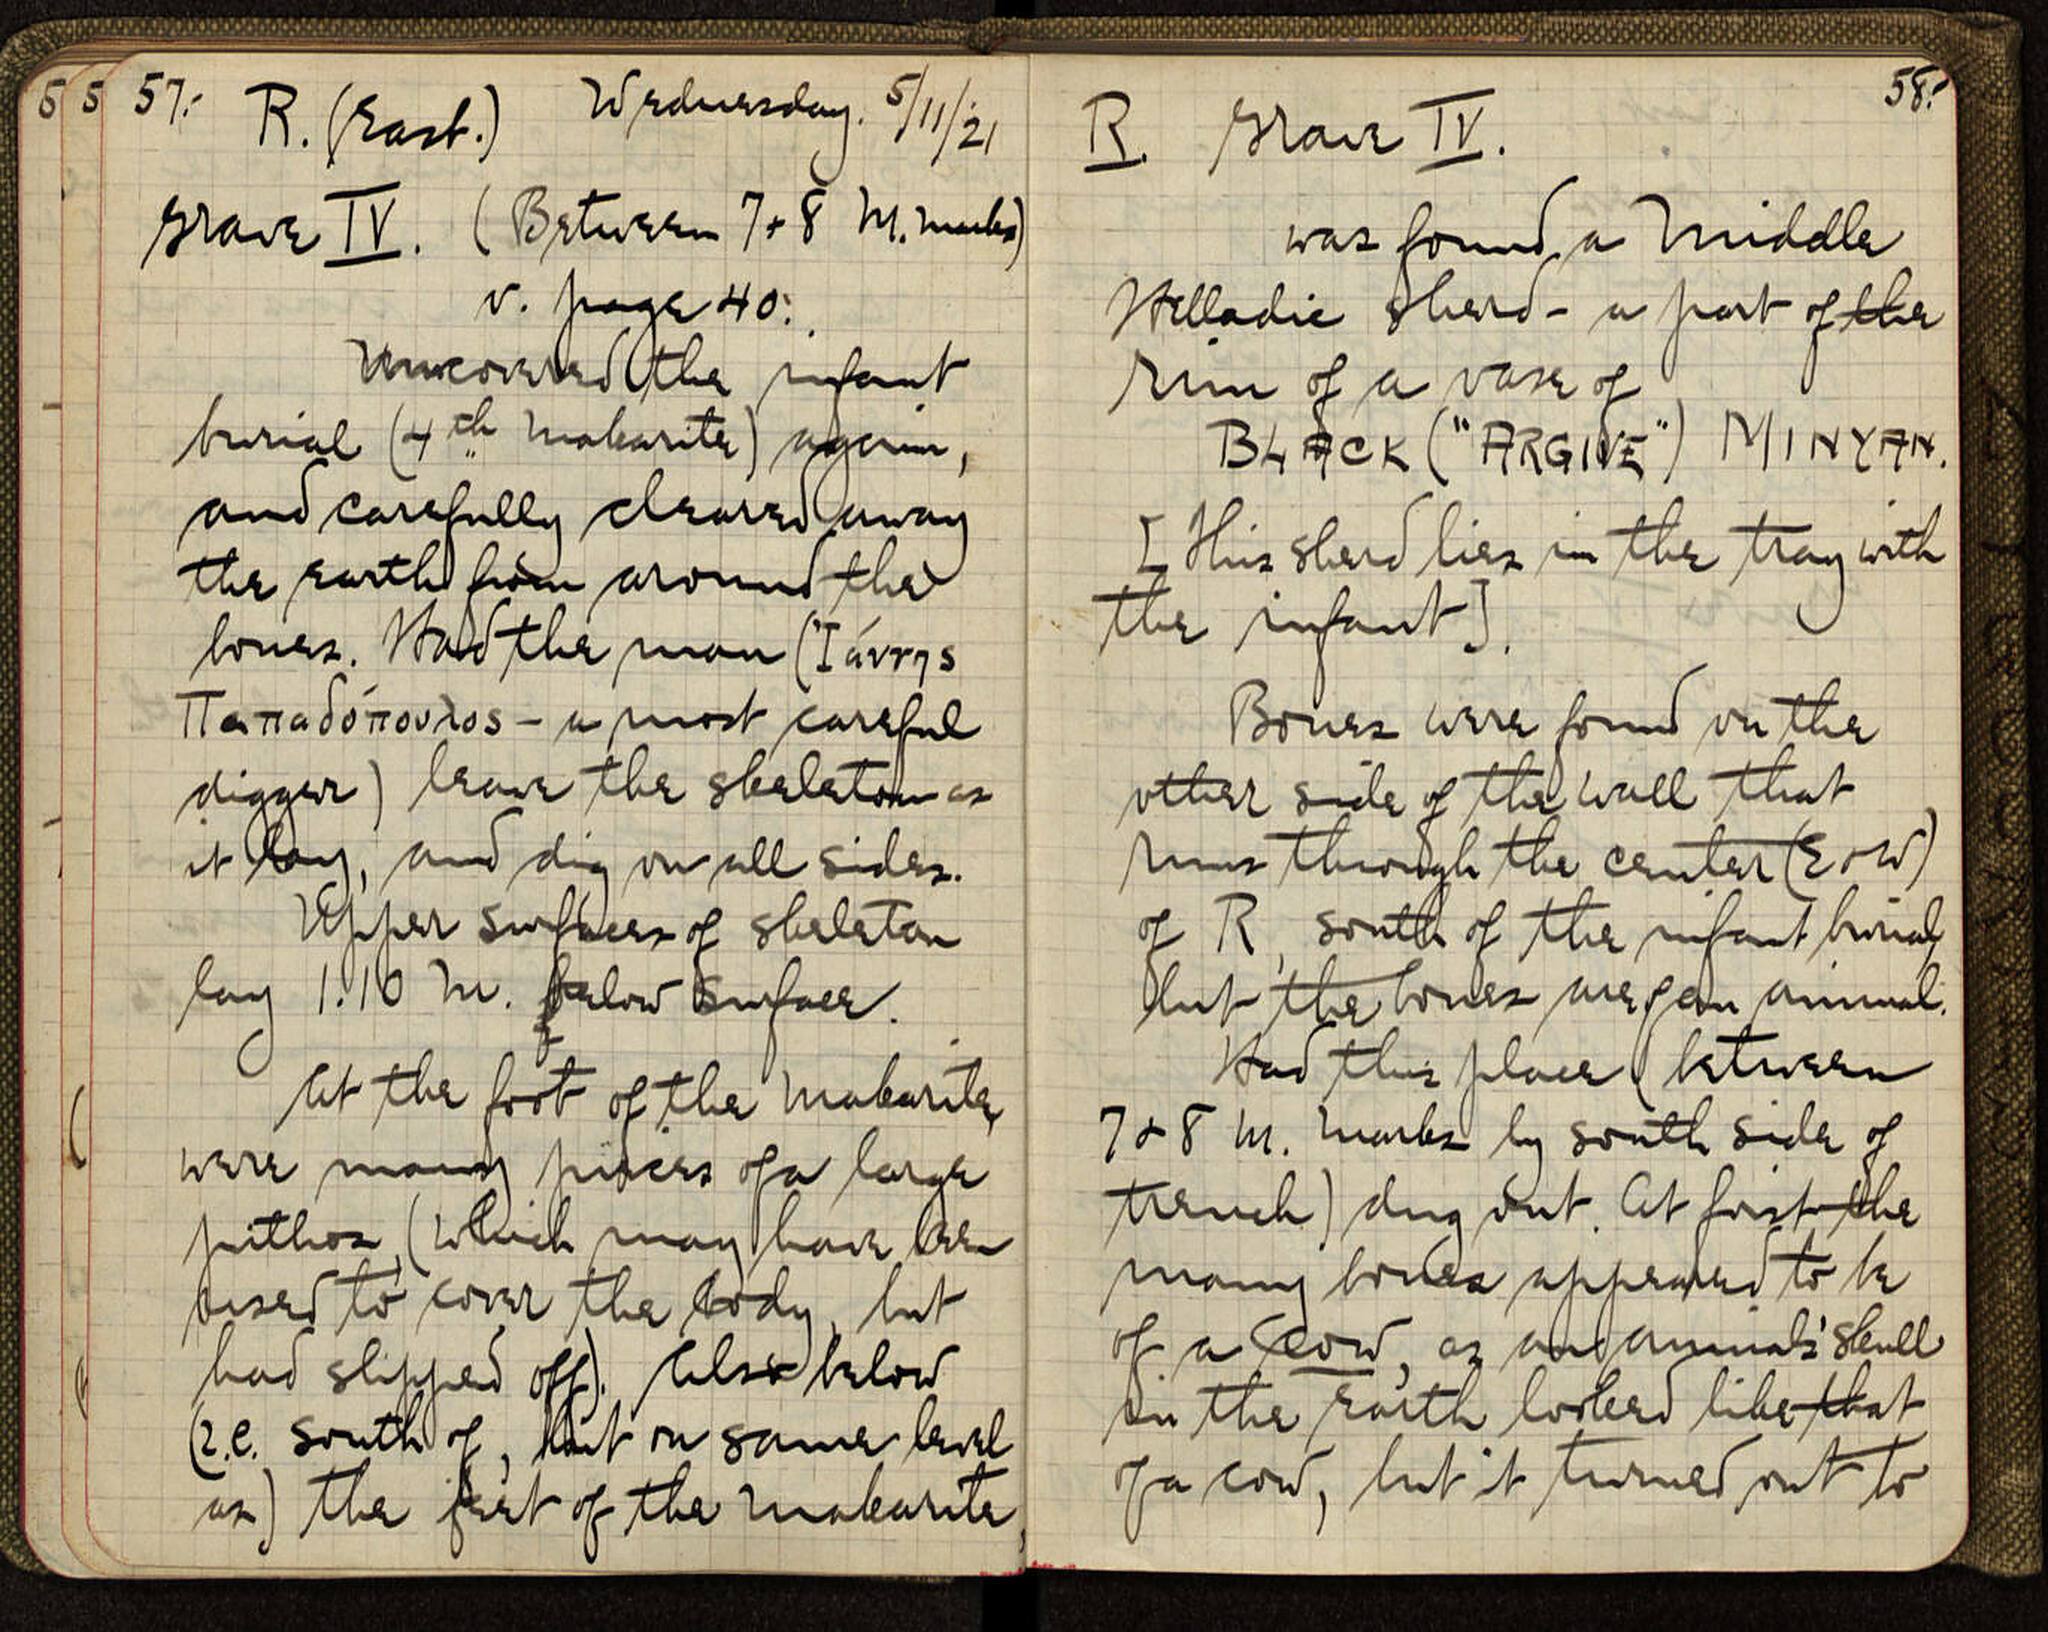 57.
R. (East.) Wednesday. 5/11/21
Grave IV. (Between 7 + 8 M. marks)
v. page 40.
Uncovered the infant
burial (4th makarite) again,
and carefully cleared away
the earth from around the
bones. Had the man (Ἰάννης
Παπαδόπουλος – a most careful
digger) leave the skeleton as
it lay, and dig on all sides.
Upper surfaces of skeleton
lay 1.10 m. below surface.
At the foot of the makarite
were many pieces of a large
pithos, (which may have been
used to cover the body, but
had slipped off). Also below
(i.e. south of, but on same level
as) the feet of the makarite,
58.
R. Grave IV.
was found a Middle
Helladic sherd – a part of the
rim of a vase of
BLACK ("ARGIVE") MINYAN.
[This sherd lies in the tray with
the infant].
Bones were found on the
other side of the wall that
runs through the center (E + W)
of R, south of the infant burial,
but the bones are of an animal.
Had this place (between
7 + 8 m. marks by south side of
trench) dug out. At first the
many bones appeared to be
of a cow, as an animal's skull
in the earth looked like that
of a cow, but it turned out to